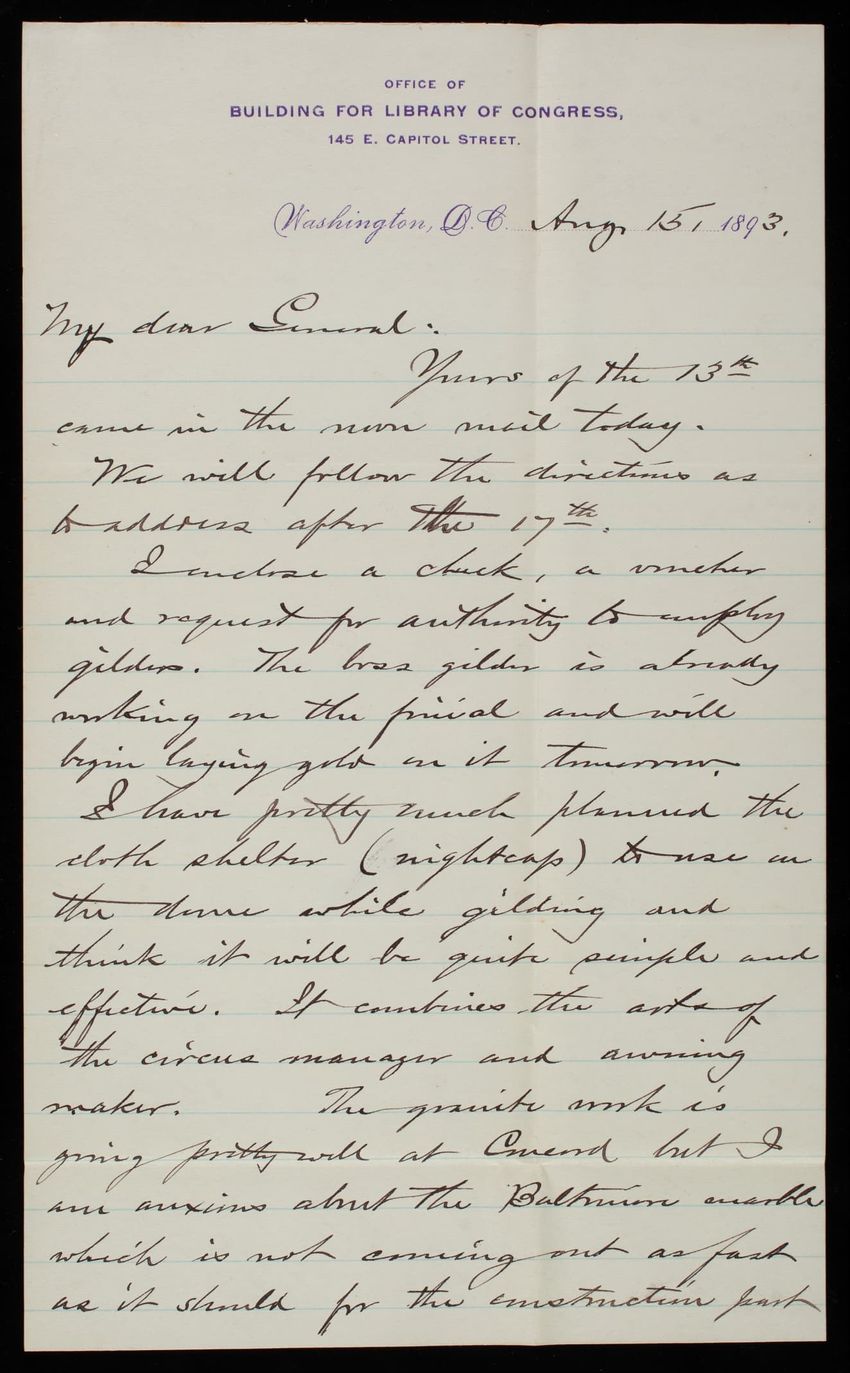 OFFICE OF
BUILDING FOR LIBRARY OF CONGRESS,
145 E. CAPITOL STREET.
Washington, D.C. Aug. 15, 1893.
My dear General:
Yours of the 13th
came in the noon mail today.
We will follow the directions as
to address after the 17th.
I enclose a check, a voucher
and request for authority to employ
gilders. The boss gilder is already
working on the finial and will
begin laying gold on it tomorrow.
I have pretty much planned the
cloth shelter (nightcap) to use on
the dome while gilding and
think it will be quite simple and
effective. It combines the arts of
the circus manager and awning
maker. The granite work is
going pretty well at Concord but I
am anxious about the Baltimore marble
which is not coming out as fast
as it should for the construction part